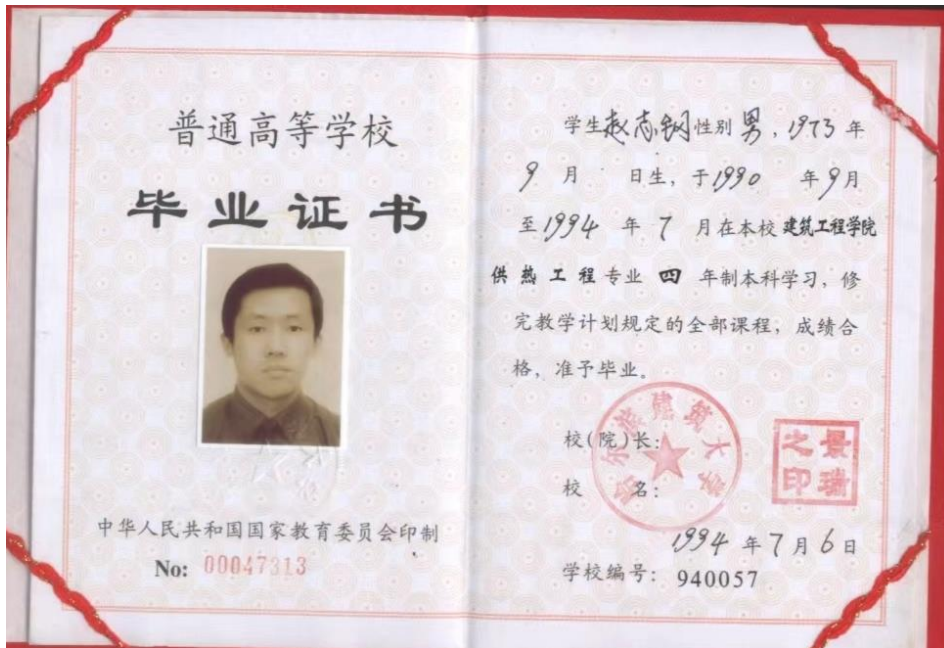 普通高等学校
毕业证书
中华人民共和国国家教育委员会印制
No: 00047313
学生赵志钢性别男，1973年
9月 日生，于1990 年9月
至1994 年 7 月在本校建筑工程学院
供热工程专业 四 年制本科学习，修
完教学计划规定的全部课程，成绩合
格，准予毕业。
校(院)长：
校 名：
哈尔滨建筑大学
景瑞之印
1994 年7月6日
学校编号：940057